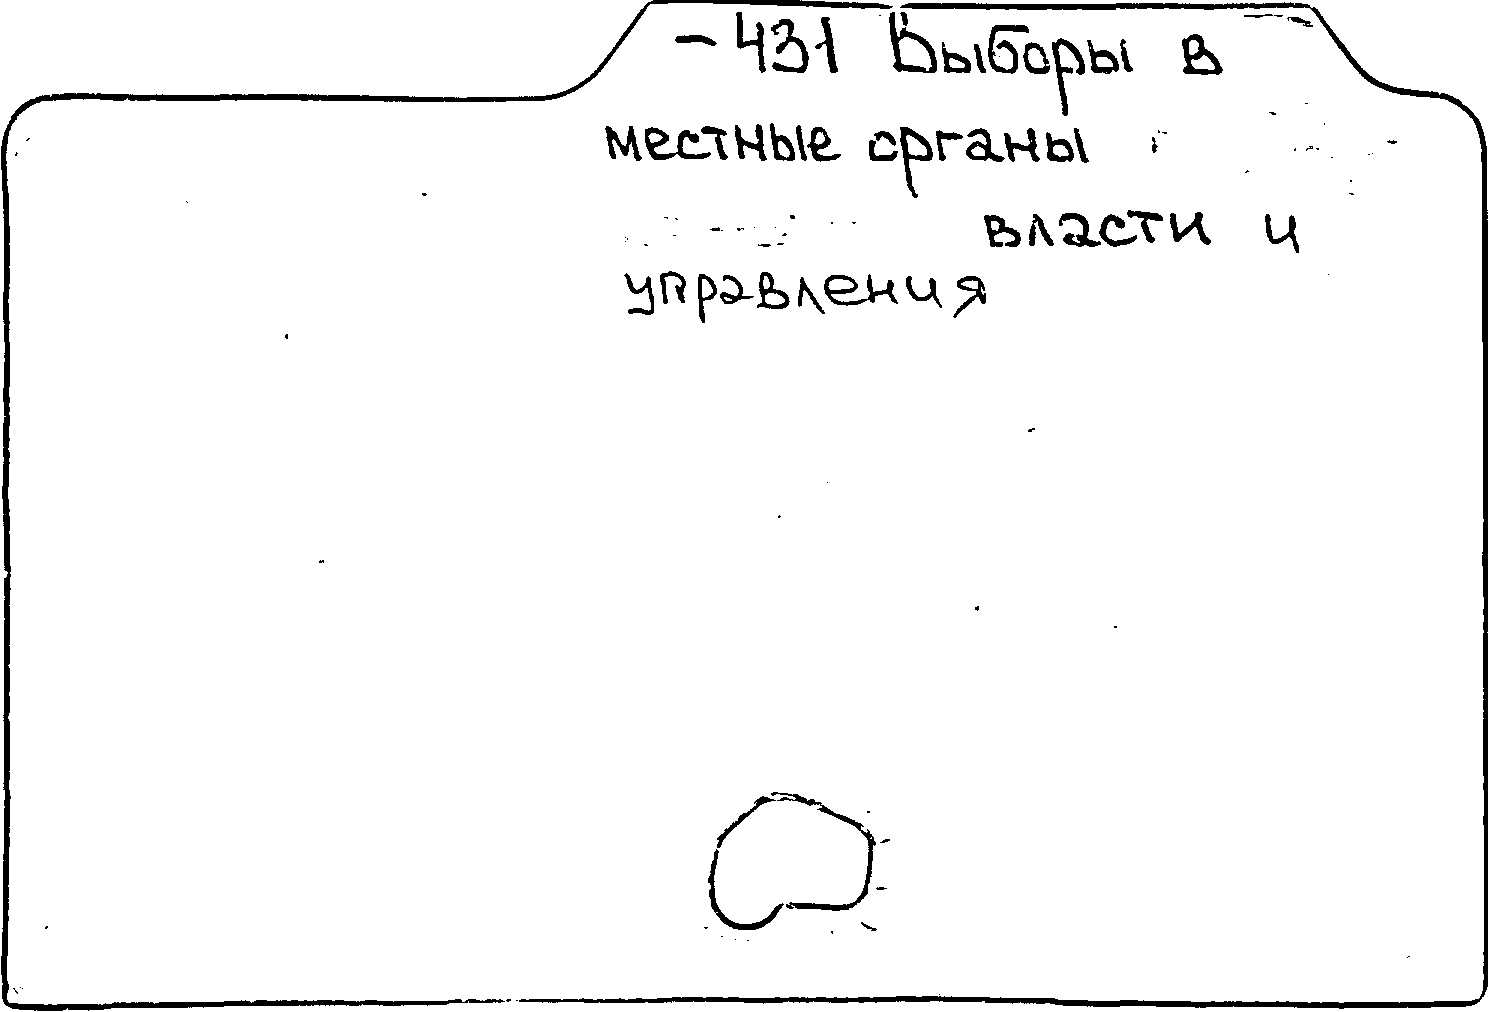 -431 Выборы в
местные органы
власти и
управления